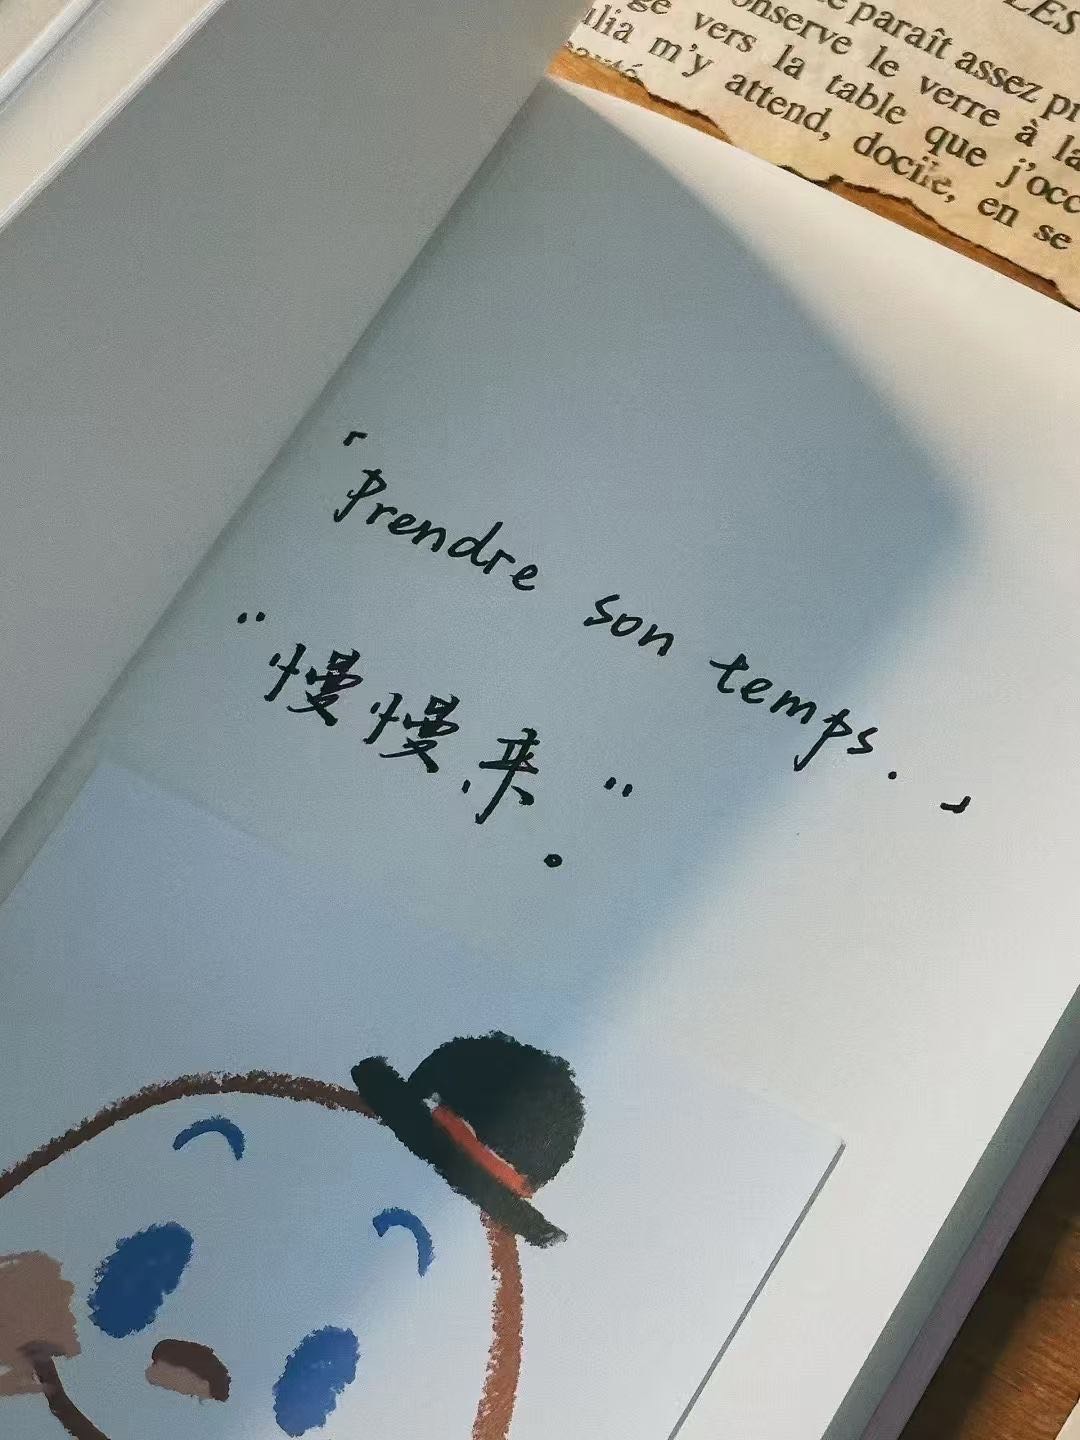 LES
paraît assez
onserve le verre à la
vers la table que j'occ
m'y attend, docile, en se
「Prendre son temps.」
"慢慢来"。